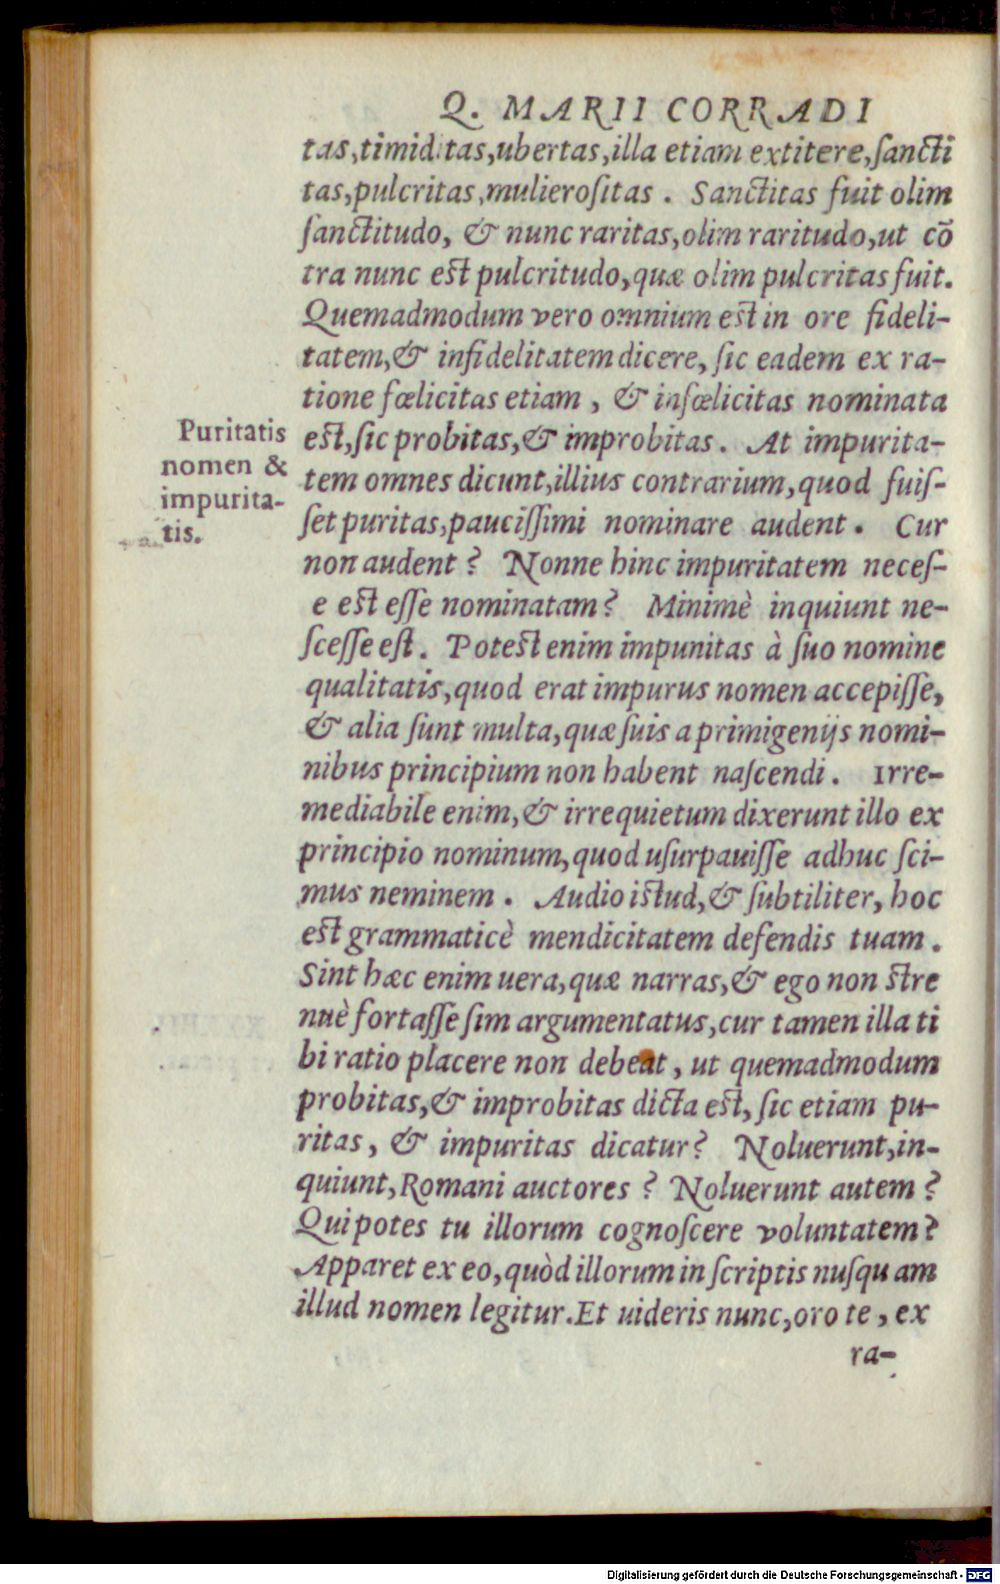 Q. MARII CORRADI
tas,timiditas,ubertas,illa etiam extitere,ſancti
tas,pulcritas,mulieroſitas . Sanctitas fuit olim
ſanctitudo, & nunc raritas,olim raritudo,ut cō
tra nunc est pulcritudo,quæ olim pulcritas fuit.
Quemadmodum vero omnium est in ore fideli-
tatem,& infidelitatem dicere, ſic eadem ex ra-
tione fœlicitas etiam , & inſœlicitas nominata
est,ſic probitas,& improbitas . At impurita-
tem omnes dicunt,illius contrarium,quod fuiſ-
ſet puritas,pauciſſimi nominare audent . Cur
non audent ? Nonne hinc impuritatem neceſ-
e est eſſe nominatam ? Minimè inquiunt ne-
ſceſſe eſt . Potest enim impunitas à ſuo nomine
qualitatis,quod erat impurus nomen accepiſſe,
& alia ſunt multa,quæ ſuis a primigenijs nomi-
nibus principium non habent naſcendi . Irre-
mediabile enim,& irrequietum dixerunt illo ex
principio nominum,quod uſurpauiſſe adhuc ſci-
mus neminem . Audio istud,& ſubtiliter, hoc
est grammaticè mendicitatem defendis tuam .
Sint hæc enim uera,quæ narras,& ego non stre
nuè fortaſſe ſim argumentatus,cur tamen illa ti
bi ratio placere non debeat , ut quemadmodum
probitas,& improbitas dicta est, ſic etiam pu-
ritas , & impuritas dicatur ? Noluerunt,in-
quiunt,Romani auctores ? Noluerunt autem ?
Qui potes tu illorum cognoſcere voluntatem ?
Apparet ex eo,quòd illorum in ſcriptis nuſqu am
illud nomen legitur.Et uideris nunc,oro te , ex
ra-
Puritatis
nomen &
impurita-
tis.
Digitalisierung gefördert durch die Deutsche Forschungsgemeinschaft - DFG